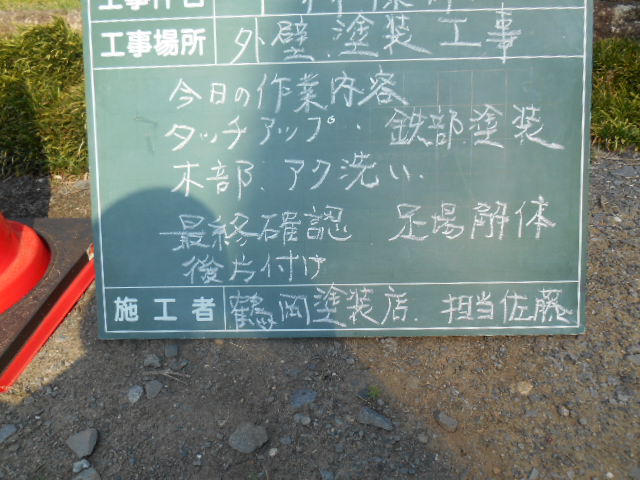 工事場所 外壁.塗装工事
今日の作業内容
タッチアップ・鉄部.塗装
木部.アク洗い.
最終確認 足場解体
後片付け
施工者 鶴岡塗装店.担当佐藤